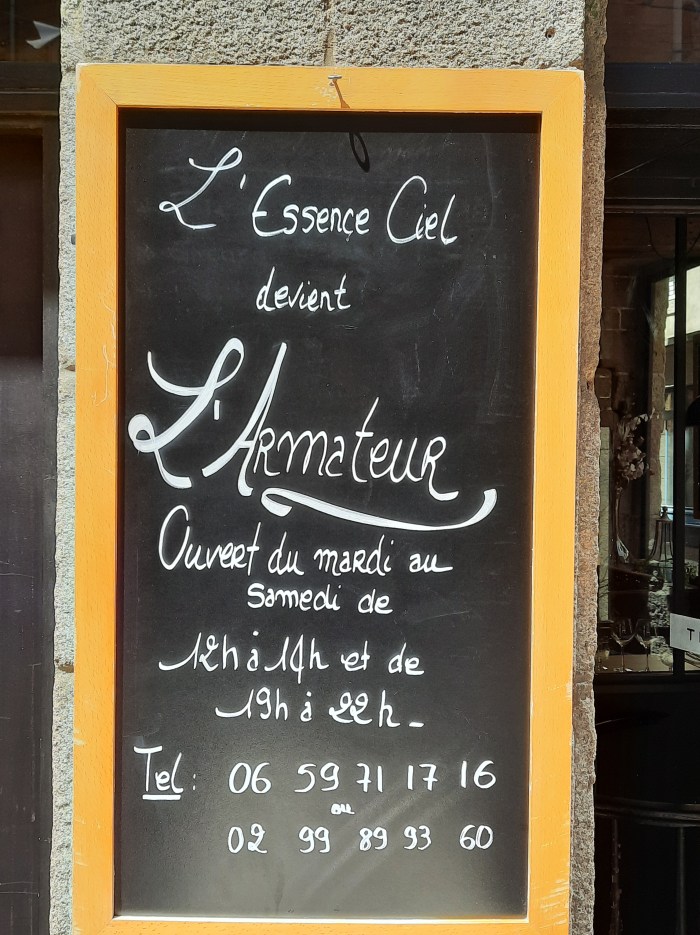 L'Essence Ciel
devient
L'Armateur
Ouvert du mardi au
Samedi de
12h à 14h et de
19h à 22h_
Tel : 06 59 71 17 16
ou
02 99 89 93 60